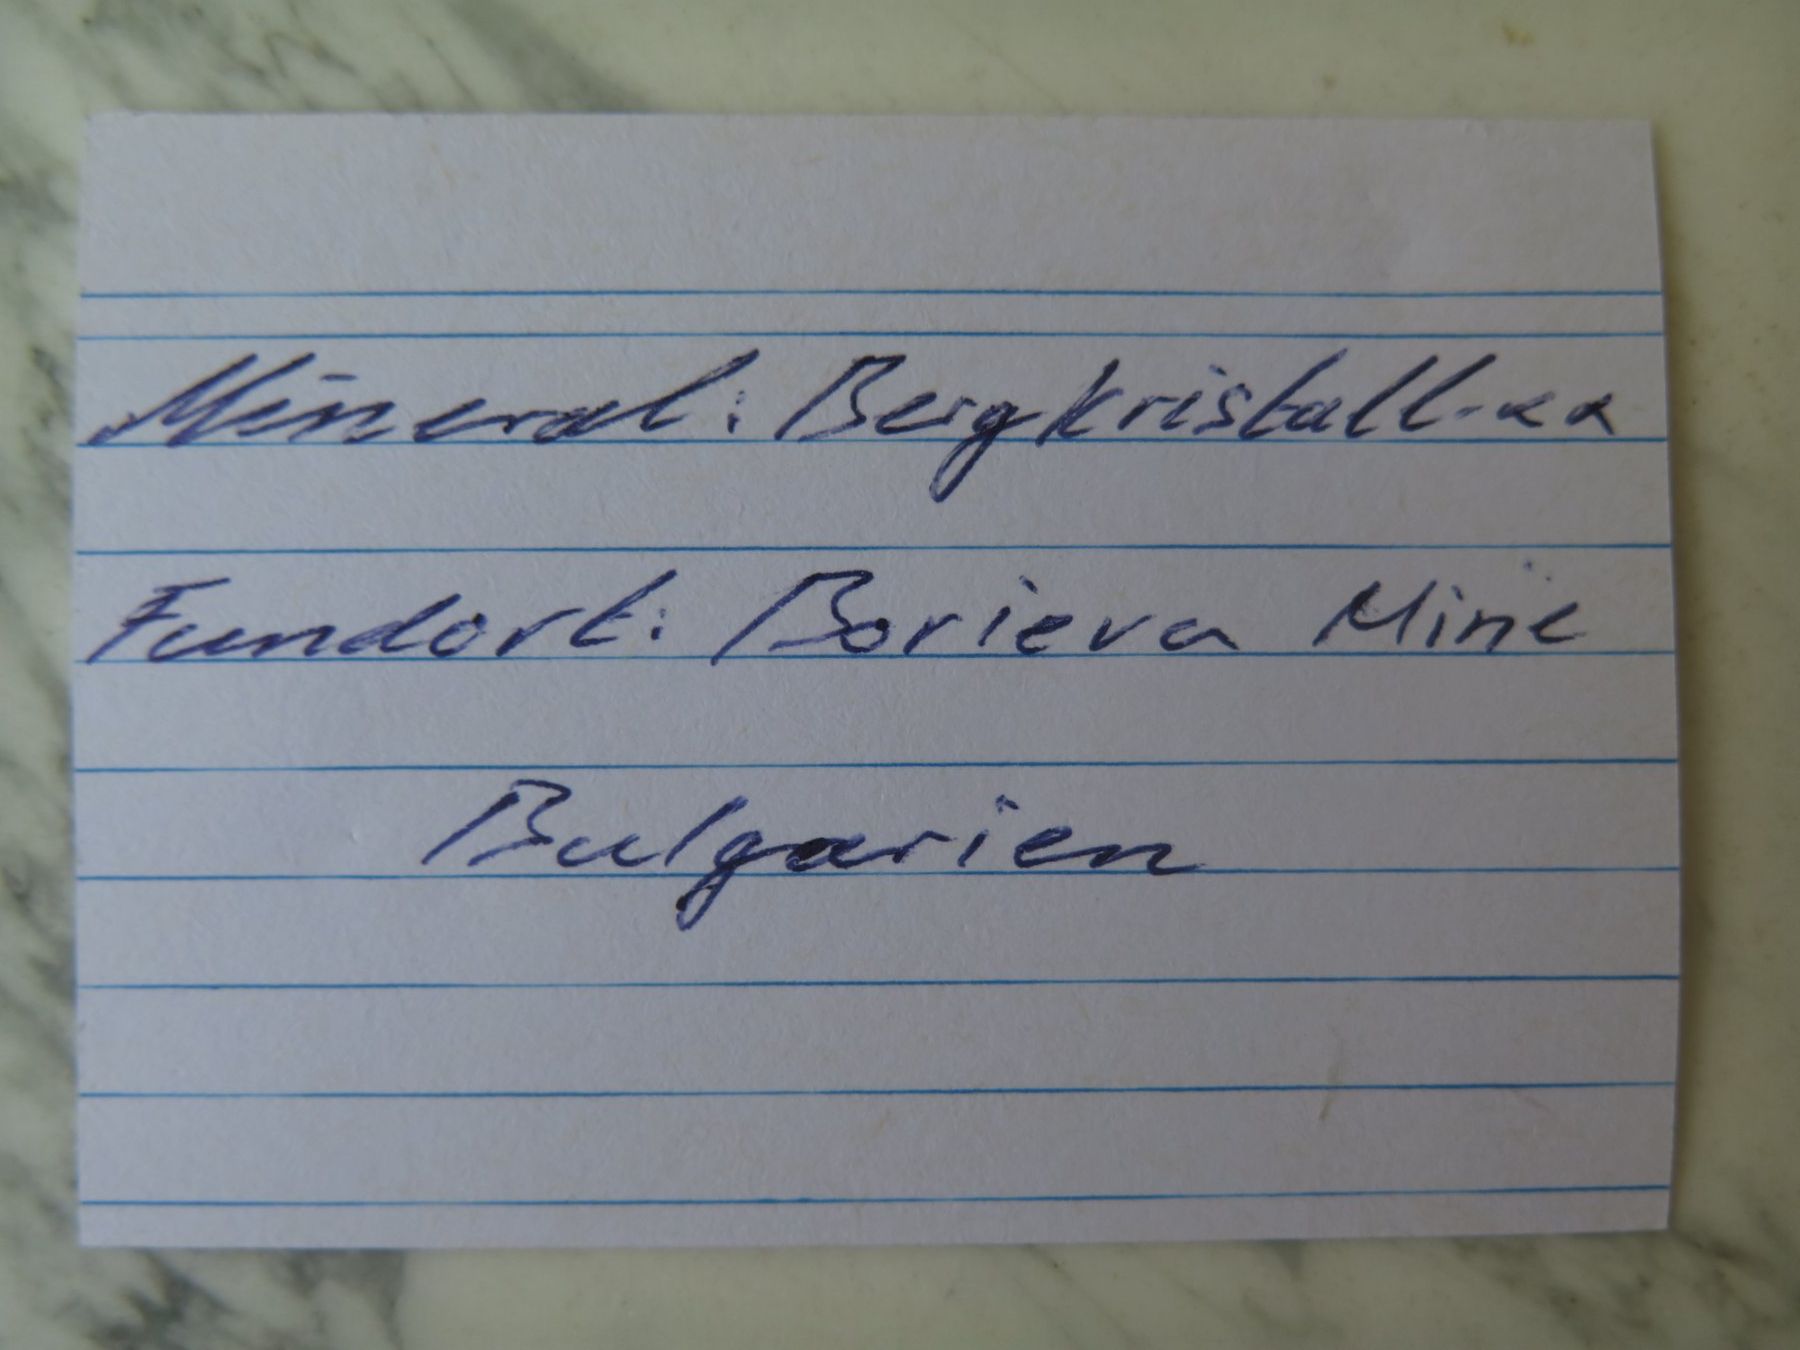 Mineral: Bergkristall-xx
Fundort: Borieva Mine
Bulgarien